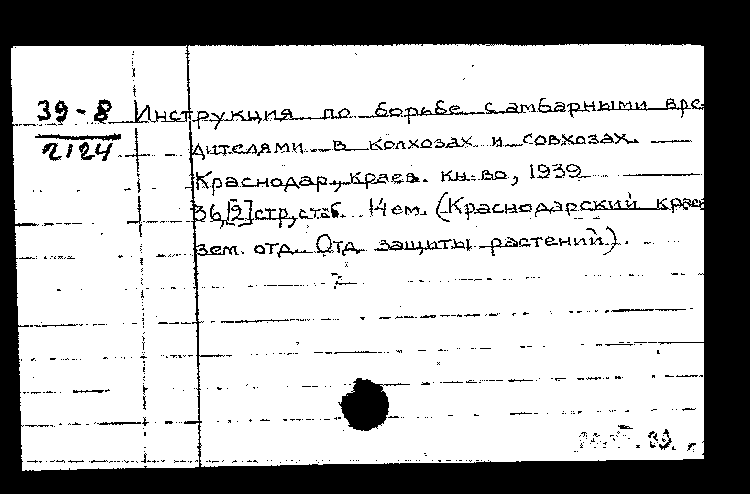 39-8
2124
Инструкция по борьбе с амбарными вре-
дителями в колхозах и совхозах.
Краснодар, краев. кн-во, 1939
36,[2]стр, с таб. 14см. (Краснодарский краев
зем. отд. Отд. защиты растений).